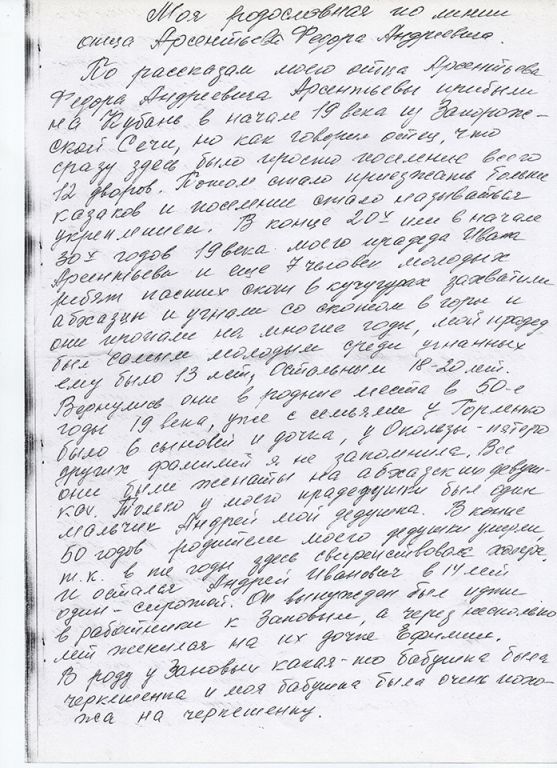 Моя родословная по линии
отца Арсентьева Федора Андреевича.
По рассказам моего отца Арсентьева
Федора Андреевича Арсентьевы прибыли
на Кубань в начале 19 века из Запорож-
ской Сечи, но как говорил отец, что
сразу здесь было просто поселение всего
12 дворов. Потом стало приезжать больше
казаков и поселение стало называться
укреплением. В конце 20х или в начале
30х годов 19 века моего прадеда Ивана
Арсентьева и еще 7 человек молодых
ребят пасших скот в кучугурах захватили
абхазцы и угнали со скотом в горы и
они пропали на многие годы, мой прадед
был самым молодым среди угнанных
ему было 13 лет, остальным 18-20 лет.
Вернулись они в родные места в 50-е
годы 19 века, уже с семьями у Горленко
было 8 сыновей и дочка, у Околзы-пятеро
других фамилий я не запомнила. Все
они были женаты на абхазских девуш-
ках. Только у моего прадедушки был один
мальчик Андрей мой дедушка. В конце
50 годов родители моего дедушки умерли,
т.к. в те годы здесь свирепствовала холера,
и остался Андрей Иванович в 14 лет
один-сиротой. Он вынужден был идти
в работники к Зановым, а через несколько
лет женился на их дочке Ефимии.
В роду у Зановых какая-то бабушка была
черкешенка и моя бабушка была очень похо-
жа на черкешенку.